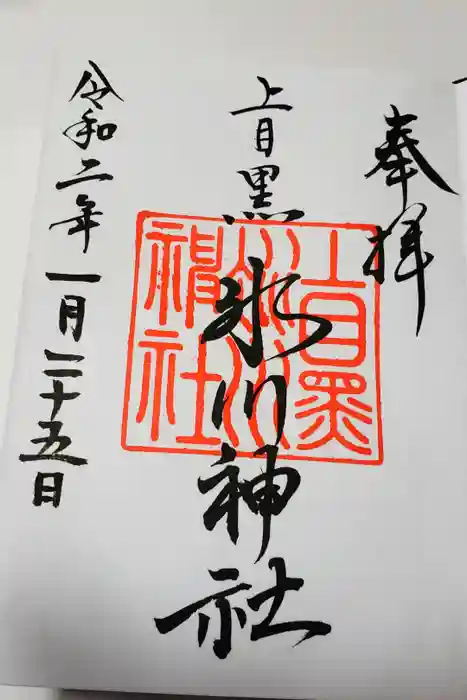 奉拝
上目黒氷川神社
上目黒氷川神社
令和二年一月二十五日